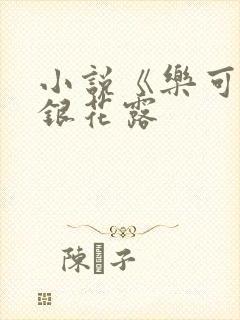 小説《樂可
銀花露
陳 子